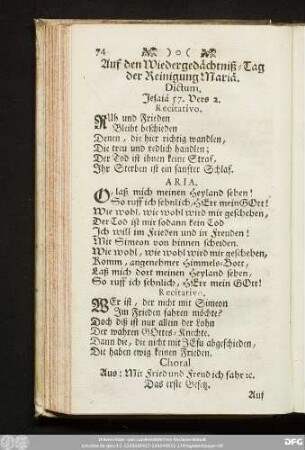 74 )o(
Auf den Wiedergedächtniß-Tag
der Reinigung Mariä.
Dictum.
Jesaiä 57. Vers 2.
Recitativo.
RUh und Frieden
Bleibt beschieden
Denen, die hier richtig wandlen,
Die treu und redlich handlen;
Der Tod ist ihnen keine Straf,
Ihr Sterben ist ein sanfter Schlaf.
ARIA.
O, laß mich meinen Heyland sehen!
So ruff ich sehnlich, HErr mein GOtt!
Wie wohl, wie wohl wird mir geschehen,
Der Tod ist mir sodann kein Tod
Ich will im Frieden und in Freuden!
Mit Simeon von hinnen scheiden.
Wie wohl, wie wohl wird mir geschehen,
Komm, angenehmer Himmels-Bott,
Laß mich dort meinen Heyland sehen,
So ruff ich sehnlich, HErr mein GOtt!
Recitativo.
WEr ist, der nicht mit Simeon
Im Frieden fahren möchte?
Doch diß ist nur allein der Lohn
Der wahren GOttes-Knechte.
Dann die, die nicht mit JEsu abgeschieden,
Die haben ewig keinen Frieden.
Choral
Aus: Mit Fried und Freud ich fahr ꝛc.
Das erste Gesetz.
Auf